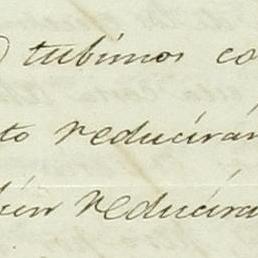 tubimos co
to reducirán
reducira